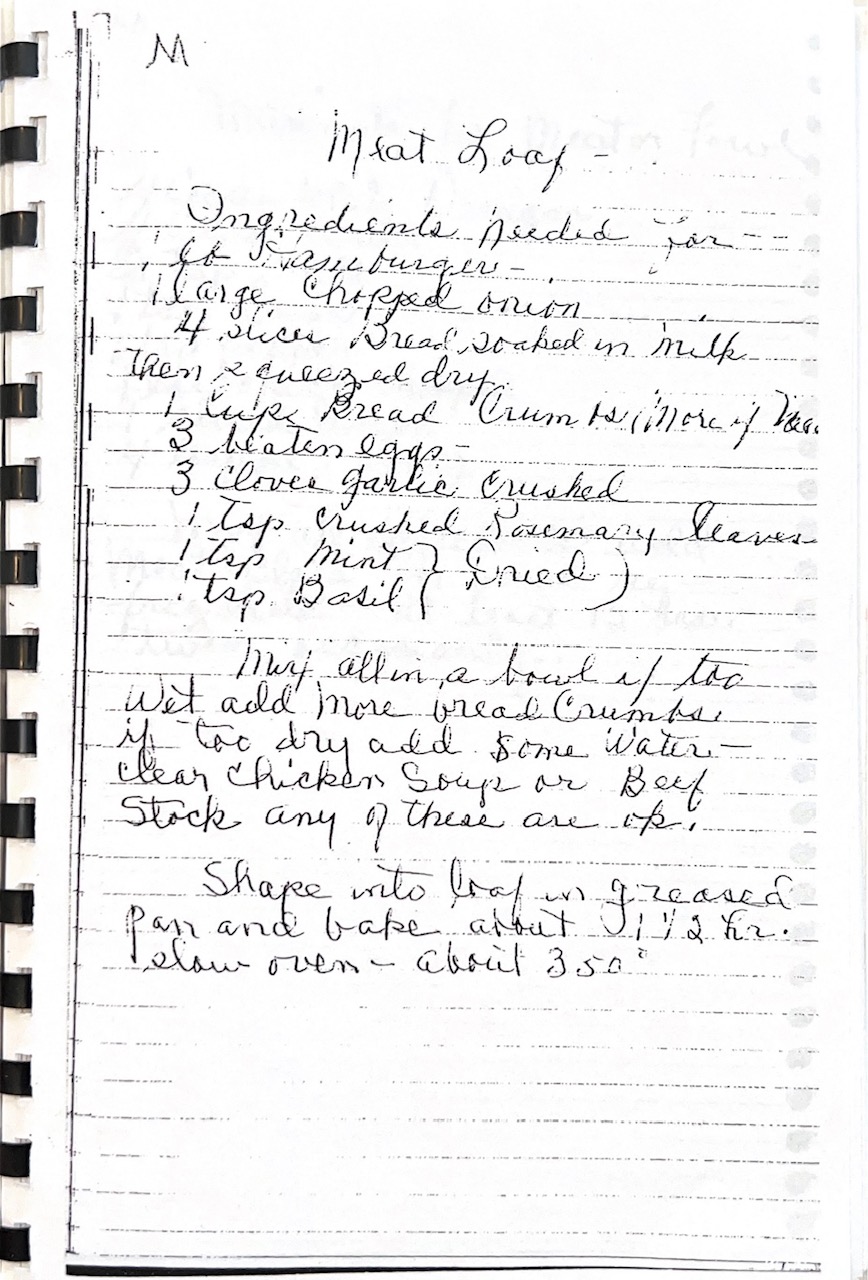 M
Meat Loaf -
Ingredients Needed for --
1 lb Hamburger -
1 large Chopped onion
4 slices Bread, soaked in milk
then squeezed dry
1 Cup Bread Crumbs (More if
3 beaten eggs -
3 cloves garlic Crushed
1 tsp crushed Rosemary leaves
1 tsp Mint } Dried )
1 tsp Basil (
Mix all in a bowl if too
Wet add More bread Crumbs.
if too dry add some Water -
clear Chicken Soup or Beef
Stock any of these are ok.
Shape into loaf in greased
pan and bake about 1 1/2 hr.
slow oven - about 350°